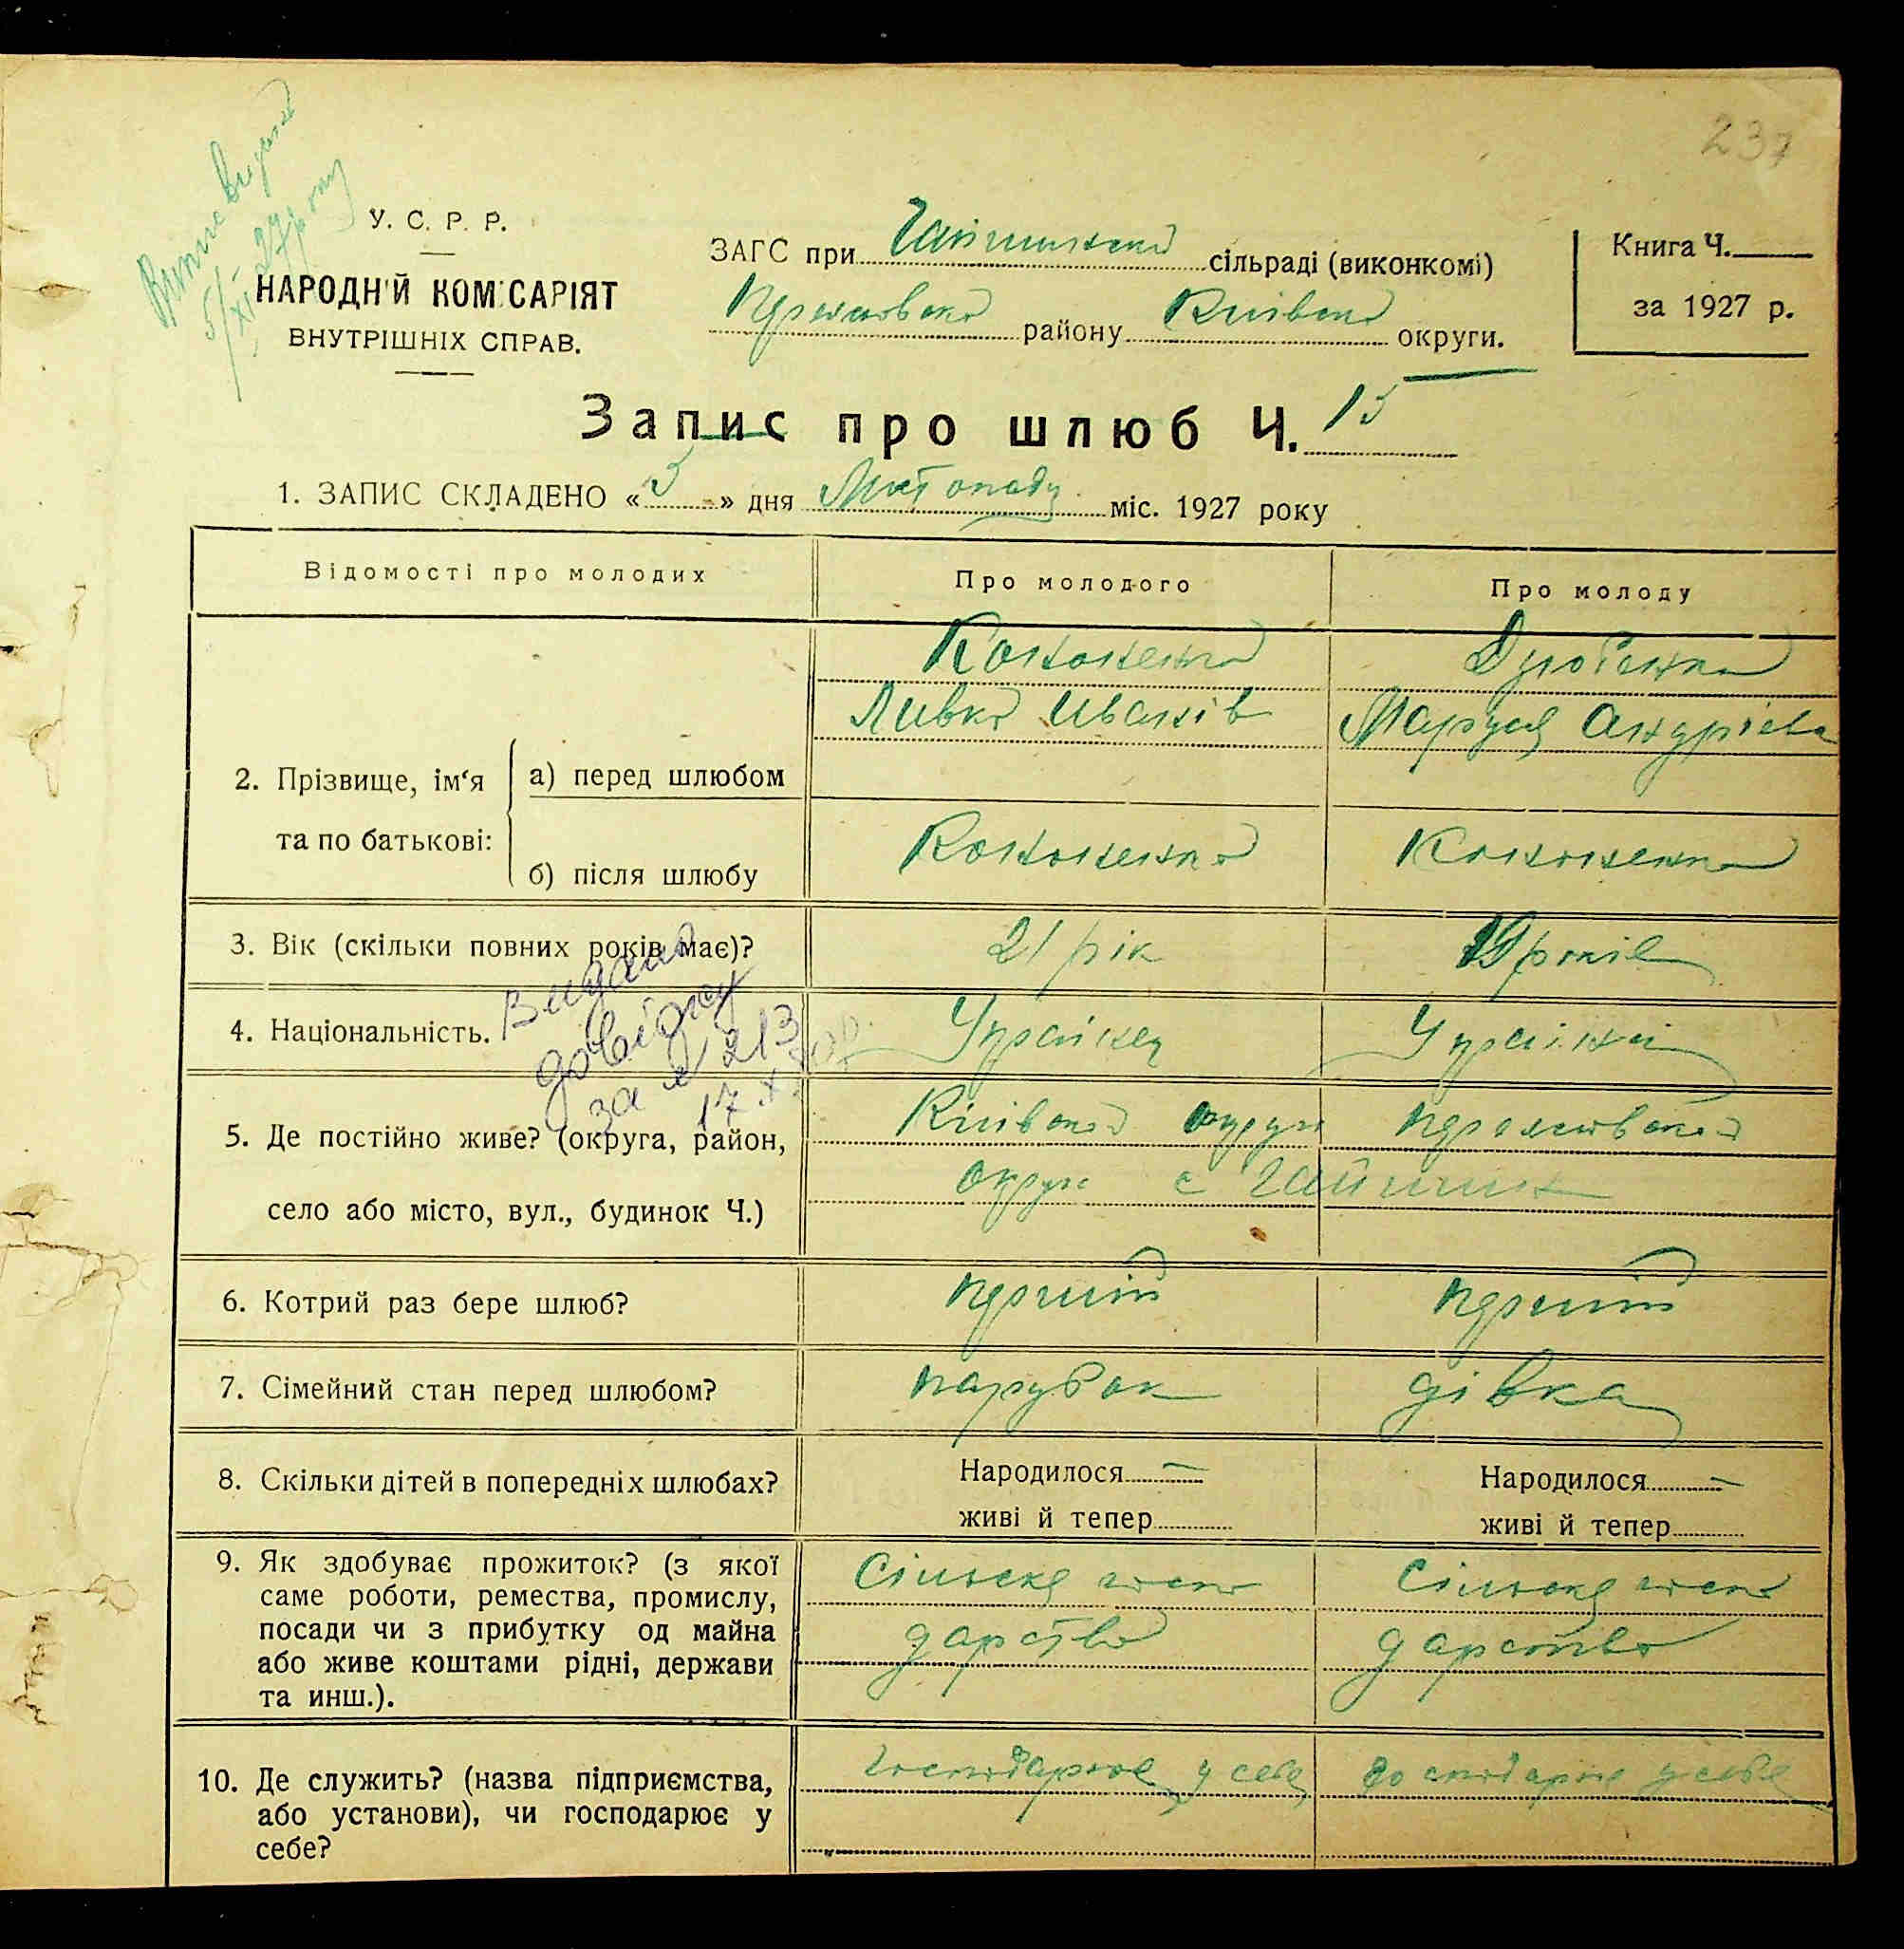 237
Випис видано
5/XI 27 року
У. С. Р. Р.
НАРОДНІЙ КОМІСАРІЯТ
ВНУТРІШНІХ СПРАВ.
ЗАГС при Гайшинско сільраді (виконкомі)
району Київско округи.
Книга Ч.
за 1927 р.
Запис про шлюб Ч. 15
1. ЗАПИС СКЛАДЕНО « 5 » дня Листопаду міс. 1927 року
Відомості про молодих
Про молодого
Про молоду
2. Прізвище, ім'я та по батькові:
а) перед шлюбом
Кононенко
Ливко Иванів
Маруся Андрієва
б) після шлюбу
Кононенко
Кононенко
3. Вік (скільки повних років має)?
21 рік
19 років
Видано
довідку
за № 213
17.X
4. Національність.
Українец
Українка
5. Де постійно живе? (округа, район,
село або місто, вул., будинок Ч.)
Київско округи
округи с Гайшин
6. Котрий раз бере шлюб?
перший
перший
7. Сімейний стан перед шлюбом?
парубок
дівка
8. Скільки дітей в попередніх шлюбах?
Народилося —
живі й тепер
Народилося —
живі й тепер
9. Як здобуває прожиток? (з якої
саме роботи, ремества, промислу,
посади чи з прибутку од майна
або живе коштами рідні, держави
та инш.).
Сільске госпо
дарство
Сільске госпо
дарство
10. Де служить? (назва підприємства,
або установи), чи господарює у
себе?
Господарює у себе
Господарює у себе